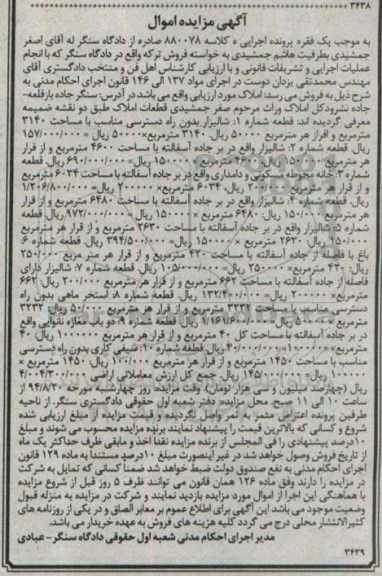 ۳۴۳۸
آگهی مزایده اموال
به موجب یک فقره پرونده اجرایی ه کلاسه ۸۸۰۰۷۸ صادره از دادگاه سنگر له آقای اصغر
جمشیدی بطرفیت هاشم جمشیدی به خواسته فروش ترکه واقع در دادگاه سنگر که با انجام
عملیات اجرایی و تشریفات قانونی و با ارزیابی کارشناس اهل فن و منتخب دادگستری آقای
مهندس محمدتقی یزدان دوست در اجرای مواد ۱۳۷ الی ۱۴۶ قانون اجرای احکام مدنی به
شرح ذیل به فروش می رسد: املاک مورد ارزیابی واقع می باشد در آدرس: سنگر جاده بازقلعه-
جاده نشرودکل املاک وراث مرحوم صفر جمشیدی قطعات املاک طبق دو نقشه ضمیمه
معرفی گردیده اند: قطعه شماره ۱: شالیزار بدون راه دسترسی مناسب با مساحت ۳۱۴۰
مترمربع و افراز هر مترمربع ۵۰۰۰۰ ریال ۳۱۴۰ مترمربع×۵۰۰۰۰ ریال = ۱۵۷/۰۰۰/۰۰۰
ریال. قطعه شماره ۲: شالیزار واقع در بر جاده آسفالته با مساحت ۴۶۰۰ مترمربع و از قرار
هر مترمربع ریال ۴۶۰۰ مترمربع ۱۵۰۰۰۰ ریال= ۶۹۰/۰۰۰/۰۰۰ ریال. قطعه
شماره ۳: خانه محوطه مسکونی و دامداری واقع در بر جاده آسفالته با مساحت ۶۰۳۴ مترمربع
و از قرار هر مترمربع ریال ۶۰۳۴ مترمربع× ۲۰۰۰۰۰ ریال= ۱/۲۰۶/۸۰۰/۰۰۰
ریال. قطعه شماره ۴: شالیزار واقع در بر جاده آسفالته با مساحت ۶۴۸۰ مترمربع و از قرار
هر مترمربع ۱۵۰/۰۰۰ ریال: ۶۴۸۰ مترمربع × ۱۵۰۰۰۰ ریال= ۹۷۲/۰۰۰/۰۰۰ ریال. قطعه
شماره ۵: شالیزار واقع در بر جاده آسفالته با مساحت ۲۶۳۰ مترمربع و از قرار هر مترمربع
۱۵۰/۰۰۰ ریال: ۲۶۳۰ مترمربع × ۱۵۰۰۰۰ ریال= ۳۹۴/۵۰۰/۰۰۰ ریال. قطعه شماره ۶:
باغ با فاصله از جاده آسفالته با مساحت ۴۲۰ مترمربع و از قرار هر متر مربع ۲۵۰/۰۰۰
ریال: ۴۲۰ مترمربع× ۲۵۰۰۰۰ ریال= ۱۰۵/۰۰۰/۰۰۰ ریال. قطعه شماره ۷: شالیزار دارای
فاصله از جاده آسفالته با مساحت ۶۶۲ مترمربع و از قرار هر مترمربع ۲۰۰/۰۰۰ ریال: ۶۶۲
مترمربع× ۲۰۰۰۰۰ ریال= ۱۳۲/۴۰۰/۰۰۰ ریال. قطعه شماره ۸: استخر ماهی بدون راه
دسترسی مناسب با مساحت ۳۲۳۲ مترمربع و از قرار هر مترمربع ۵۰/۰۰۰ ریال: ۳۲۳۲
مترمربع × ۵۰۰۰۰ ریال= ۱۶۱/۶۰۰/۰۰۰ ریال. قطعه شماره ۹: دو باب مغازه نانوایی واقع
در بر جاده آسفالته با مساحت کل ۴۰ مترمربع و از قرار هر مترمربع ریال: ۴۰
مترمربع× ریال. قطعه شماره ۱۰: صیفی کاری بدون راه دسترسی
مناسب با مساحت ۱۴۵۰ مترمربع و از قرار هر مترمربع ۱۰۰/۰۰۰ ریال: ۱۴۵۰ مترمربع ×
۱۰۰۰۰۰ ریال= ۱۴۵/۰۰۰/۰۰۰ ریال. جمع کل ارزش معاملاتی اراضی
ریال (چهارصد میلیون و سی هزار تومان) وقت مزایده: چهارشنبه مورخه ۹۴/۸/۲۰ از
ساعت ۱۰ الی ۱۱ صبح محل مزایده: دفتر شعبه اول حقوقی دادگستری سنگر. از ناحیه
طرفین پرونده اعتراض مثمر به ثمر واصل نگردیده و قیمت مزایده از مبلغ ارزیابی شده
شروع و کسانی که بالاترین قیمت را پیشنهاد نمایند برنده مزایده محسوب می شوند و مبلغ
۱۰درصد پیشنهادی را فی المجلس از برنده مزایده نقدا اخذ و مابقی ظرف حداکثر یک ماه
از تاریخ فروش وصول خواهد شد در غیر اینصورت مبلغ ۱۰درصد مستندا به ماده ۱۲۹ قانون
اجرای احکام مدنی به نفع صندوق دولت ضبط خواهد شد ضمنا کسانی که تمایل به شرکت
در مزایده را دارند وفق ماده ۱۲۶ همان قانون می توانند ظرف ۵ روز قبل از شروع مزایده
با هماهنگی این اجرا از اموال مورد مزایده بازدید نمایند و شرکت در مزایده به منزله قبول
وضعیت موجود می باشد این آگهی برای اطلاع عموم بر معابر الصاق و در یکی از روزنامه های
کثیرالانتشار محلی درج می گردد کلیه هزینه های فروش به عهده خریدار می باشد.
مدیر اجرای احکام مدنی شعبه اول حقوقی دادگاه سنگر- عبادی
۳۴۳۹